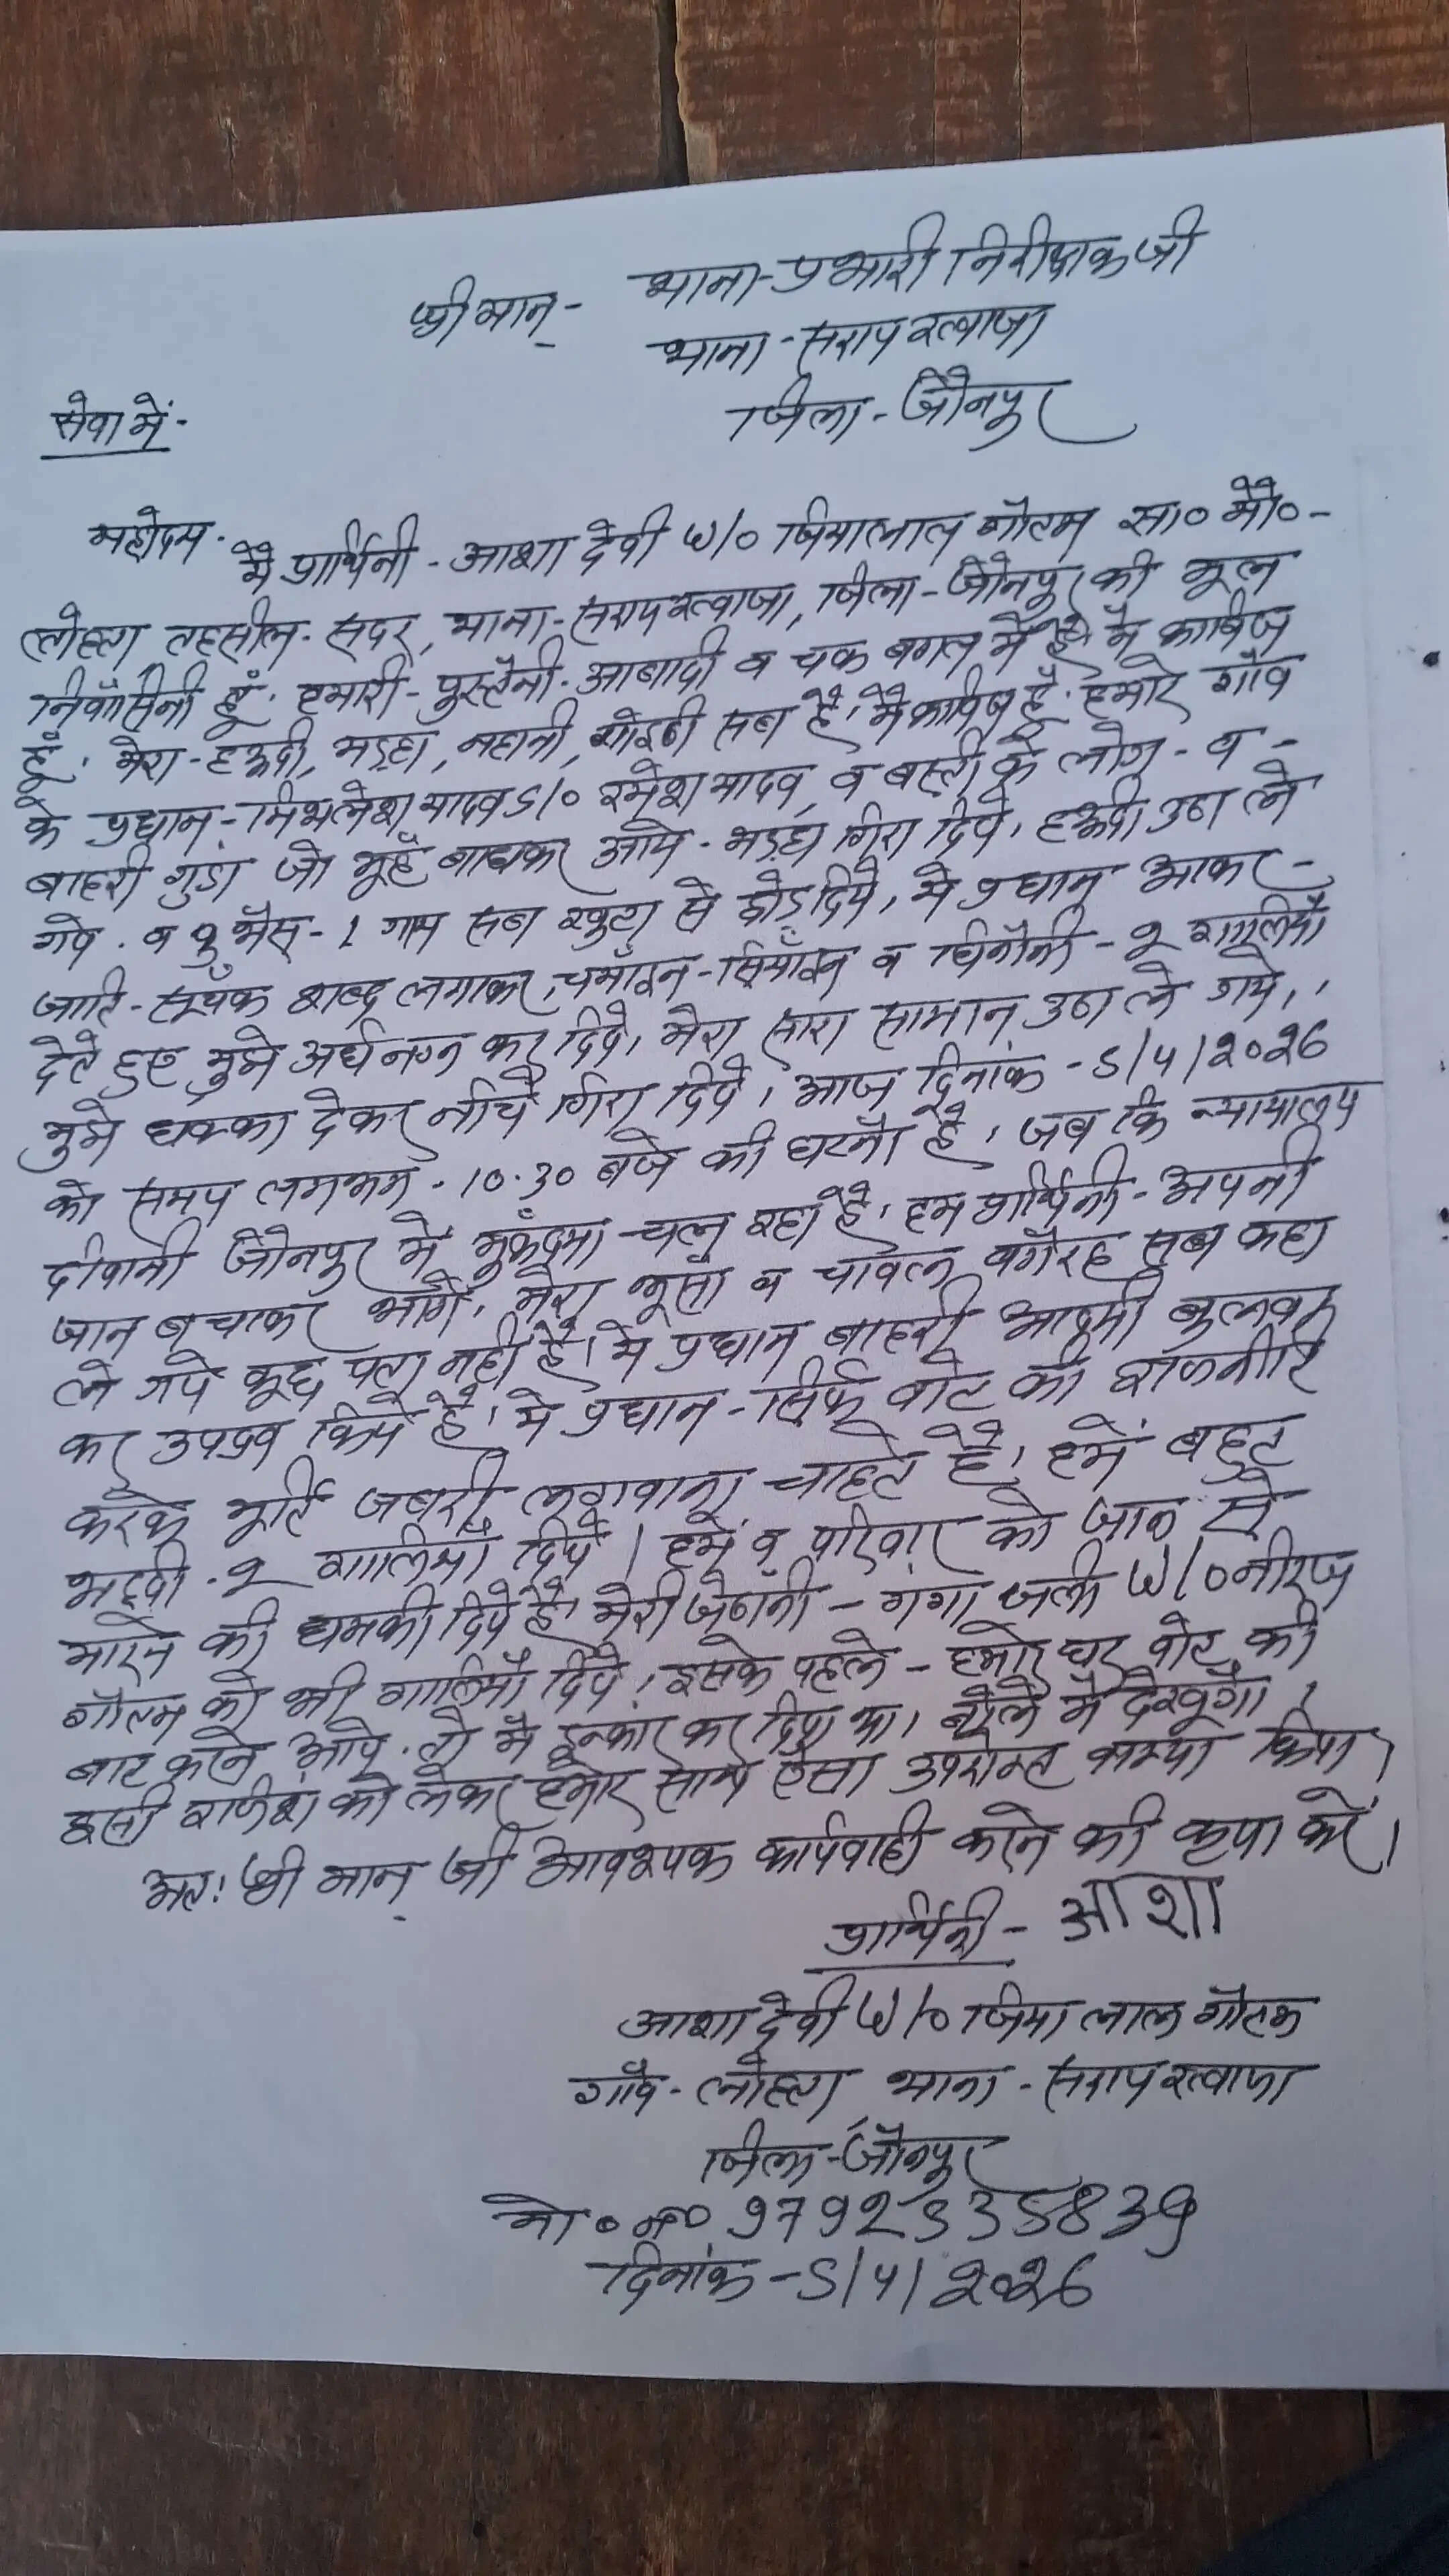 श्रीमान्- थाना-प्रभारी निरीक्षक जी
थाना-सरायख्वाजा
जिला-जौनपुर
सेवा में-
महोदय.
मै प्रार्थिनी-आशा देवी W/o जियालाल गौतम सा० मौ०-
लोहता तहसील-सदर, थाना-सरायख्वाजा, जिला-जौनपुर की मूल
निवासिनी हूं. हमारी-पुस्तैनी-आबादी व चक बगल में है मै काबिज
हूं, मेरा-हऊदी, मड़हा, नहानी, सब है, मै काबिज हूं. हमारे गाँव
के प्रधान-मिथलेश यादव S/o रमेश यादव व बस्ती के लोग-व-
बाहरी गुंडा जो मूहँ बाधकर आये-मड़हा गिरा दिये, हऊदी उठा ले
गये. व भैंस-1 गाय सब खुटा से छोड़ दिये, ये प्रधान आकर-
जाति-सूचँक शब्द लगाकर, चमाँइन-सिमाँइन व घिनौनी-2 गालियाँ
देते हुए मुझे अर्धनग्न कर दिये, मेरा सारा सामान उठा ले गये,,
मुझे धक्का देकर नीचे गिरा दिये, आज दिनांक-5/4/2026
को समय लगभग-10.30 बजे की घटना है, जब कि न्यायालय
दीवानी जौनपुर में मुकँदमा चल रहा है, हम प्रार्थिनी-अपनी
जान बचाकर भागे, मेरा भूसा व चावल वगैरह सब कहा
ले गये कूछ पता नही है, ये प्रधान बाहरी आदमी बुलवा
कर उपद्रव किये है, ये प्रधान-सिर्फ वोट की राजनीति
करके मूर्ति जबरी लगवाना चाहते है, हमें बहुत
भद्दी-2 गालियाँ दिये। हमें व परिवार को जान से
मारने की धमकी दिये है, मेरी जेठानी-गंगा जली W/o नीरज
गौतम को भी गालियाँ दिये, इसके पहले-हमारे घर वोट की
बात करने आये. तो मै इन्कार कर दिया था, बोले मै देखूगा,
इसी रंजिश को लेकर हमारे साथ ऐसा किया।
अतः श्री मान् जी आवश्यक कार्यवाही करने की कृपा करें।
प्रार्थिनी-आशा
आशा देवी W/o जिया लाल गौतम
गाँव-लोहता, थाना-सरायख्वाजा
जिला-जौनपुर
मो० न० 9792535839
दिनांक-5/4/2026